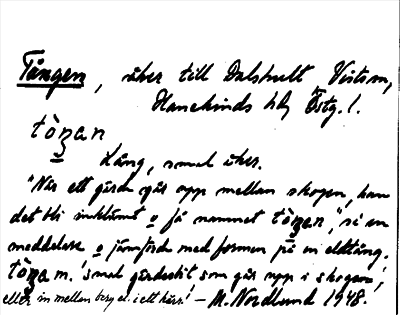 Tången, åker till Dalshult, Vists sn,
Hanekinds hd, Östg. l.
tòŋan
Lång, smal åker.
"När ett gärde går upp mellan skogen, kan
det bli inklämt o få namnet tòŋan", si en
meddelare o jämförde med formen på en eldtång.
tòŋa m. 'smal gärdesbit som går upp i skogen',
eller in mellan berg el. i ett kärr! – M. Nordlund 1948.